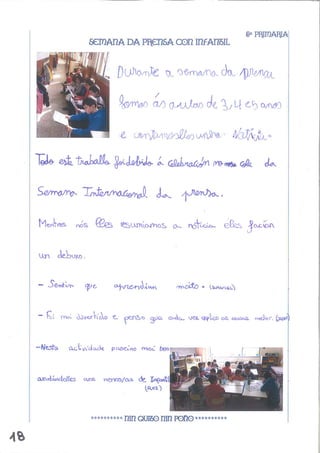 6º PRIMARIA
SEMANA DA PRENSA CON INFANTIL
Durante a semana da prensa
fomos ás aulas de 3, 4 e 5 anos
e contamoslles unha noticia.
Todo este traballo foi debido á celebración da
Semana Internacional da prensa.
Mentres nós lles resumiamos a noticia eles facían
un debuxo.
- Sentín que aprendían moito.
- Foi moi divertido e penso que cada vez explico as cousas mellor.
- Nesta actividade pareceu moi ben
aos nenos/as de Infantil
********** NIN QUIÑO NIN POÑO **********
18